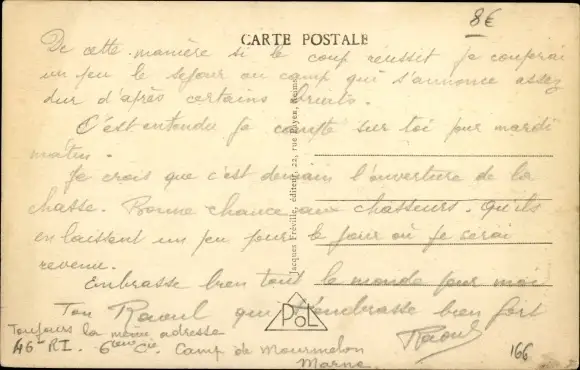 8€
CARTE POSTALE
De cette manière si le coup réussit je couperai
un peu le séjour au camp qui s'annonce assez
dur d'après certains bruits.
C'est entendu je compte sur toi pour mardi
matin.
Je crois que c'est demain l'ouverture de la
chasse. Bonne chance aux chasseurs. Qu'ils
en laissent un peu pour le jour où je serai
revenu.
Embrasse bien tout le monde pour moi
Ton Raoul qui t'embrasse bien fort
Raoul
Toujours la même adresse
46e RI. 6eme Cie. Camp de Mourmelon
Marne.
Jacques Fréville, éditeur, 22, rue
POL
166